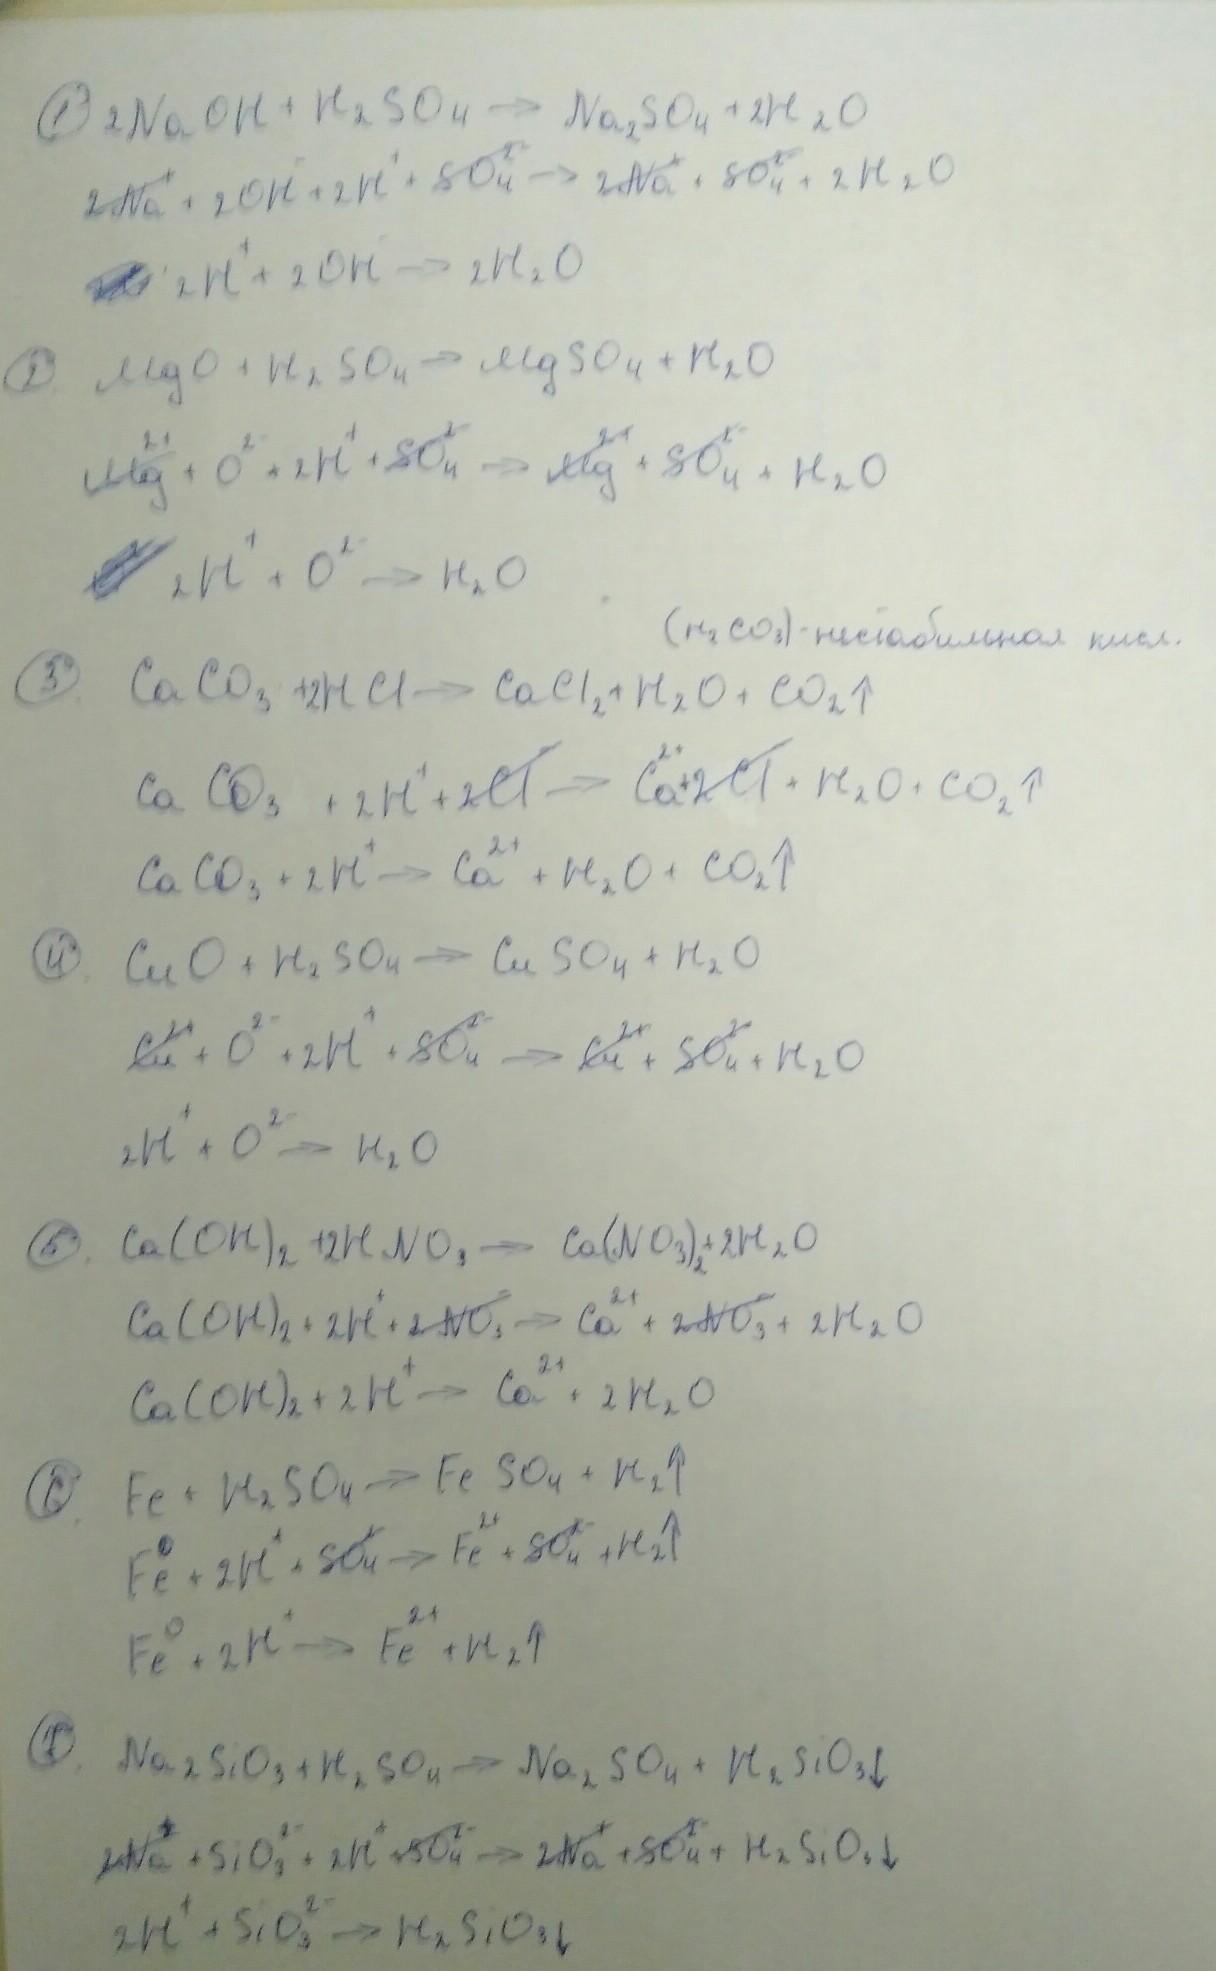 ① 2NaOH + H₂SO₄ → Na₂SO₄ + 2H₂O
2Na⁺ + 2OH⁻ + 2H⁺ + SO₄²⁻ → 2Na⁺ + SO₄²⁻ + 2H₂O
2H⁺ + 2OH⁻ → 2H₂O
②. MgO + H₂SO₄ → MgSO₄ + H₂O
Mg²⁺ + O²⁻ + 2H⁺ + SO₄²⁻ → Mg²⁺ + SO₄²⁻ + H₂O
2H⁺ + O²⁻ → H₂O
(H₂CO₃) - нестабильная кисл.
③. CaCO₃ + 2HCl → CaCl₂ + H₂O + CO₂↑
CaCO₃ + 2H⁺ + 2Cl⁻ → Ca²⁺ + 2Cl⁻ + H₂O + CO₂↑
CaCO₃ + 2H⁺ → Ca²⁺ + H₂O + CO₂↑
④. CuO + H₂SO₄ → CuSO₄ + H₂O
Cu²⁺ + O²⁻ + 2H⁺ + SO₄²⁻ → Cu²⁺ + SO₄²⁻ + H₂O
2H⁺ + O²⁻ → H₂O
⑤. Ca(OH)₂ + 2HNO₃ → Ca(NO₃)₂ + 2H₂O
Ca(OH)₂ + 2H⁺ + 2NO₃⁻ → Ca²⁺ + 2NO₃⁻ + 2H₂O
Ca(OH)₂ + 2H⁺ → Ca²⁺ + 2H₂O
⑥. Fe + H₂SO₄ → FeSO₄ + H₂↑
Fe⁰ + 2H⁺ + SO₄ → Fe²⁺ + SO₄²⁻ + H₂↑
Fe⁰ + 2H⁺ → Fe²⁺ + H₂↑
⑦. Na₂SiO₃ + H₂SO₄ → Na₂SO₄ + H₂SiO₃↓
2Na⁺ + SiO₃²⁻ + 2H⁺ + SO₄²⁻ → 2Na⁺ + SO₄²⁻ + H₂SiO₃↓
2H⁺ + SiO₃²⁻ → H₂SiO₃↓